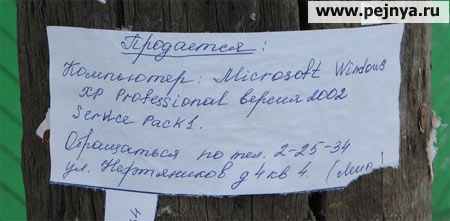 www.pejnya.ru
Продается:
Компьютер: Microsoft Windows
XP Professional версия 2002
Service Pack 1.
Обращаться по тел. 2-25-34
ул. Нефтяников д 4 кв 4.